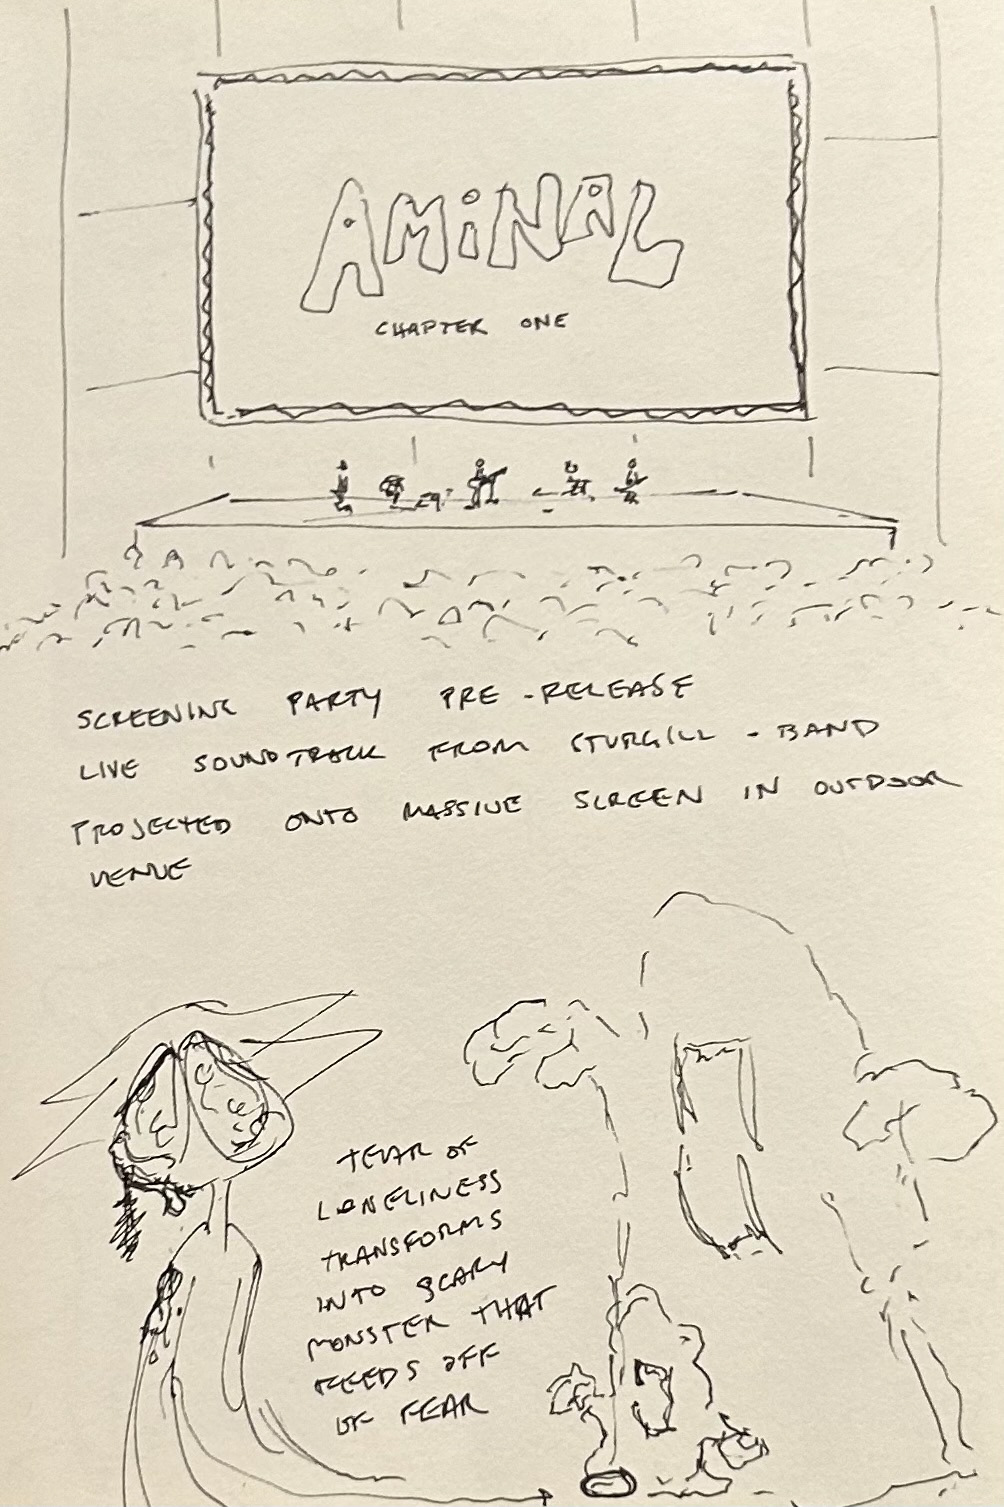 AMiNAL
CHAPTER ONE
SCREENING PARTY PRE-RELEASE
LIVE SOUNDTRACK FROM STURGILL-BAND
PROJECTED ONTO MASSIVE SCREEN IN OUTDOOR
VENUE
TEAR OF
LONELINESS
TRANSFORMS
INTO SCARY
MONSTER THAT
FEEDS OFF
OF FEAR